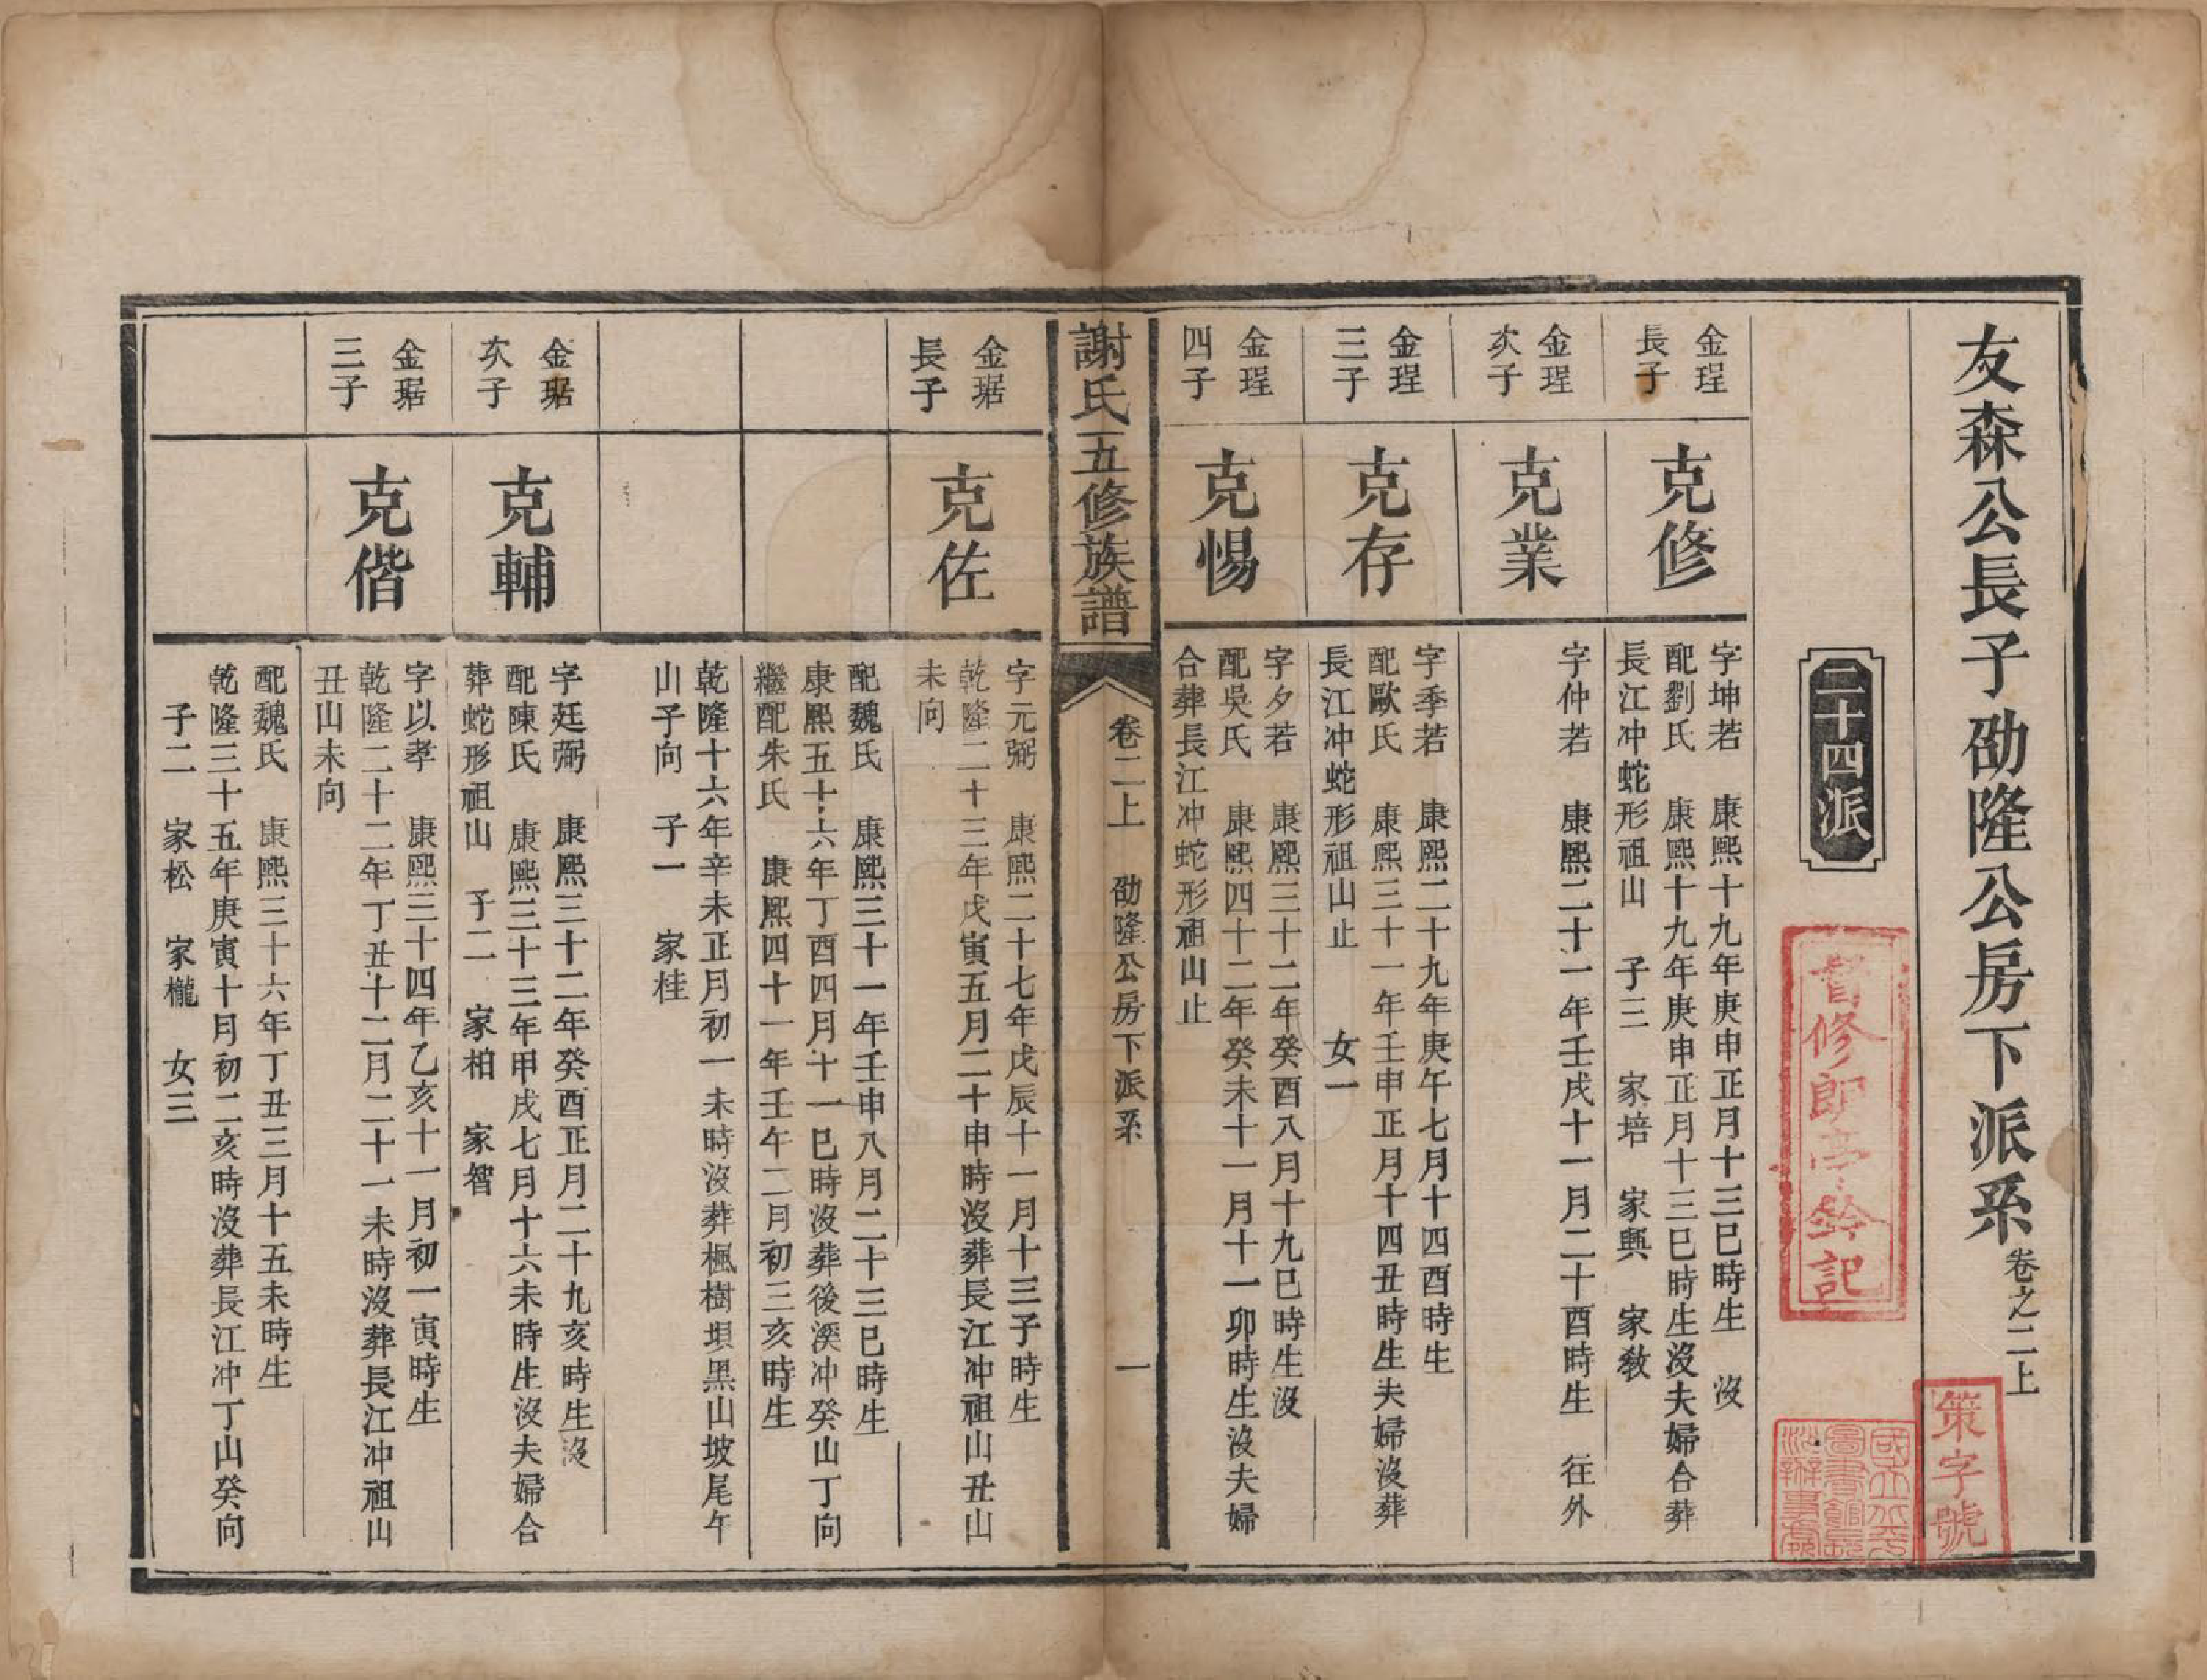 友森公長子劭隆公房下派系卷之二上
二十四派
金珵
長子
克修
字坤若　康熙十九年庚申正月十三巳時生　沒
配劉氏　康熙十九年庚申正月十三巳時生沒夫婦合葬
長江冲蛇形祖山　子三　家培　家興　家敎
金珵
次子
克業
字仲若　康熙二十一年壬戌十一月二十酉時生　往外
金珵
三子
克存
字季若　康熙二十九年庚午七月十四酉時生
配歐氏　康熙三十一年壬申正月十四丑時生夫婦沒葬
長江冲蛇形祖山止　女一
金珵
四子
克惕
字夕若　康熙三十二年癸酉八月十九巳時生沒
配吳氏　康熙四十二年癸未十一月十一卯時生沒夫婦
合葬長江冲蛇形祖山止
謝氏五修族譜
卷二上　劭隆公房下派系　一
金琚
長子
克佐
字元弼　康熙二十七年戊辰十一月十三子時生
乾隆二十三年戊寅五月二十申時沒葬長江冲祖山丑山
未向
配魏氏　康熙三十一年壬申八月二十三巳時生
康熙五十六年丁酉四月十一巳時沒葬後溪冲癸山丁向
繼配朱氏　康熙四十一年壬午二月初三亥時生
乾隆十六年辛未正月初一未時沒葬楓樹垻黑山坡尾午
山子向　子一　家桂
金琚
次子
克輔
字廷弼　康熙三十二年癸酉正月二十九亥時生沒
配陳氏　康熙三十三年甲戌七月十六未時生沒夫婦合
葬蛇形祖山　子二　家柏　家智
金琚
三子
克偕
字以孝　康熙三十四年乙亥十一月初一寅時生
乾隆二十二年丁丑十二月二十一未時沒葬長江冲祖山
丑山未向
配魏氏　康熙三十六年丁丑三月十五未時生
乾隆三十五年庚寅十月初二亥時沒葬長江冲丁山癸向
子二　家松　家櫳　女三
策字號